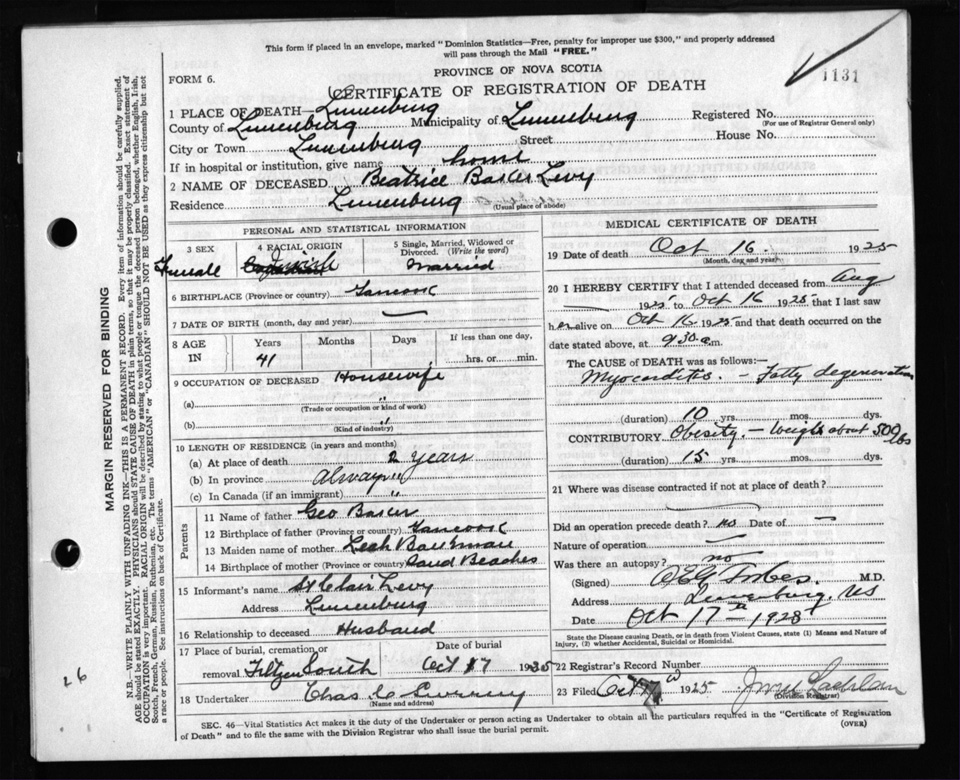 This form if placed in an envelope, marked "Dominion Statistics—Free, penalty for improper use $300," and properly addressed
will pass through the Mail "FREE."
1131
PROVINCE OF NOVA SCOTIA
FORM 6.
CERTIFICATE OF REGISTRATION OF DEATH
1 PLACE OF DEATH— Lunenburg
County of Lunenburg Municipality of Lunenburg Registered No.
(For use of Registrar General only)
City or Town Lunenburg Street House No.
If in hospital or institution, give name home
2 NAME OF DECEASED Beatrice Baker Levy
Residence Lunenburg (Usual place of abode)
PERSONAL AND STATISTICAL INFORMATION
3 SEX 4 RACIAL ORIGIN 5 Single, Married, Widowed or
Divorced. (Write the word)
Female Married
6 BIRTHPLACE (Province or country) Tancook
7 DATE OF BIRTH (month, day and year) —
8 AGE IN Years Months Days If less than one day,
41 hrs. or min.
9 OCCUPATION OF DECEASED Housewife
(a) "
(Trade or occupation or kind of work)
(b) "
(Kind of industry)
10 LENGTH OF RESIDENCE (in years and months)
(a) At place of death 2 years
(b) In province Always
(c) In Canada (if an immigrant) "
Parents
11 Name of father Geo Baker
12 Birthplace of father (Province or country) Tancook
13 Maiden name of mother Leah
14 Birthplace of mother (Province or country) Beaches
15 Informant's name St Clair Levy
Address Lunenburg
16 Relationship to deceased Husband
17 Place of burial, cremation, or Date of burial
removal South Oct 17 1925
18 Undertaker Chas
(Name and address)
MEDICAL CERTIFICATE OF DEATH
19 Date of death Oct 16 1925
(Month, day and year)
20 I HEREBY CERTIFY that I attended deceased from Aug
1925 to Oct 16 1925 that I last saw
her alive on Oct 16 1925 and that death occurred on the
date stated above, at 9 30 a.m.
The CAUSE of DEATH was as follows:—
Myocarditis. — Fatty degeneration
(duration) 10 yrs. mos. dys.
CONTRIBUTORY Obesity. — Weight about 500 lbs
(duration) 15 yrs. mos. dys.
21 Where was disease contracted if not at place of death?
Did an operation precede death? no Date of —
Nature of operation —
Was there an autopsy? no
(Signed) M.D.
Address Lunenburg, NS
Date Oct 17th — 1925
State the Disease causing Death, or in death from Violent Causes, state (1) Means and Nature of
Injury, (2) whether Accidental, Suicidal or Homicidal.
22 Registrar's Record Number
23 Filed Oct 1925
(Division Registrar)
SEC. 46—Vital Statistics Act makes it the duty of the Undertaker or person acting as Undertaker to obtain all the particulars required in the "Certificate of Registration
of Death" and to file the same with the Division Registrar who shall issue the burial permit. (OVER)
MARGIN RESERVED FOR BINDING
N.B.—WRITE PLAINLY WITH UNFADING INK—THIS IS A PERMANENT RECORD. Every item of information should be carefully supplied.
AGE should be stated EXACTLY. PHYSICIANS should STATE CAUSE OF DEATH in plain terms, so that it may be properly classified. Exact statement of
OCCUPATION is very important. RACIAL ORIGIN will be described by stating to what people or tongue the deceased person belonged, whether English, Irish,
Scotch, French, German, Russian, Ruthenian, etc. The terms "AMERICAN" or "CANADIAN" SHOULD NOT BE USED as they express citizenship but not
a race or people. See instructions on back of Certificate.
26